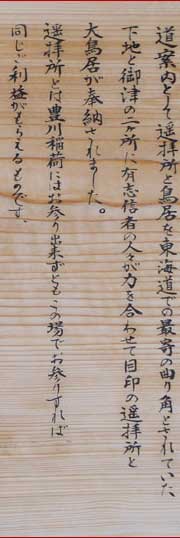 道案内として遥拝所と鳥居を東海道での最寄の曲り角とされていた
下地と御津の二ヶ所に有志信者の人々が力を合わせて目印の遥拝所と
大鳥居が奉納されました。
遥拝所とは豊川稲荷にはお参り出来ずともこの場でお参りすれば
同じご利益がもらえるものです。